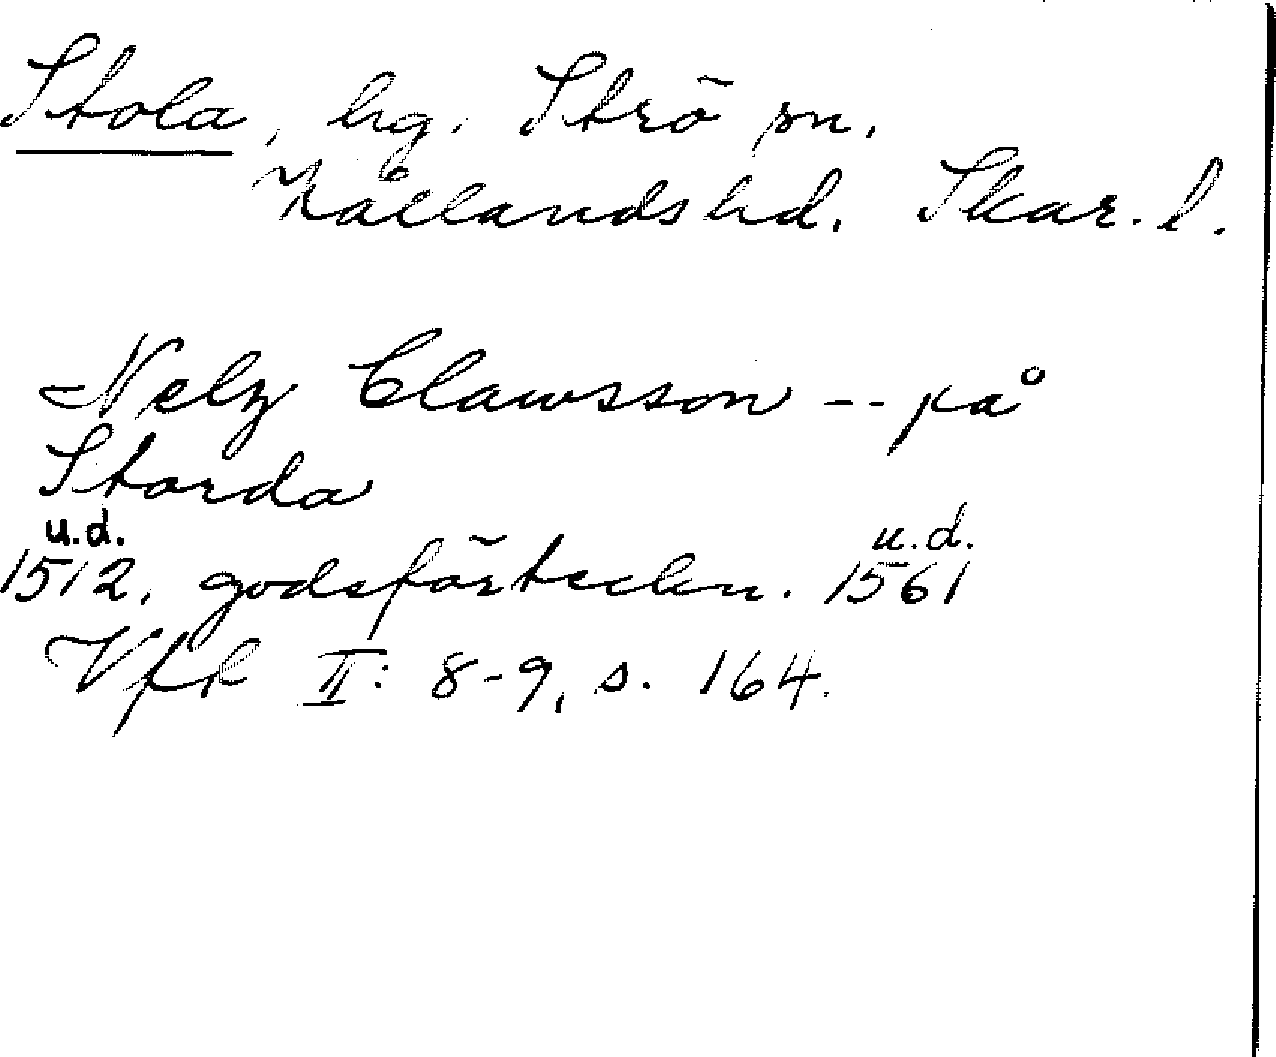 Stola, hg. Strö sn.
Kållands hd. Skar. l.
Nelz Clawsson -- på
Storda
u.d. u.d.
1512, godsförteckn. 1561
Vfk II: 8-9, s. 164.